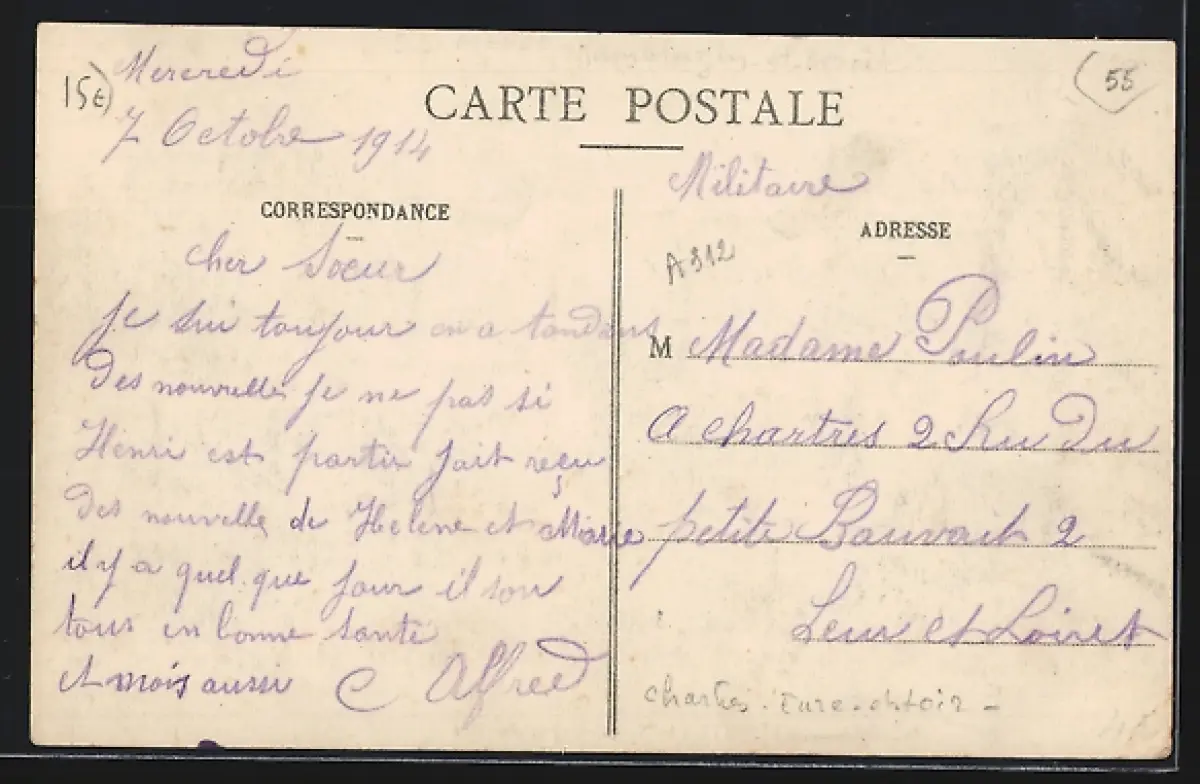 Mercredi
7 Octobre 1914
15€
CARTE POSTALE
55
Militaire
CORRESPONDANCE
cher Soeur
Je sui toujour en a tendant
des nouvelles je ne pas si
Henri est partir jait reçu
des nouvelle de Helene et Marie
il y a quel que jour il son
tous en bonne santé
et mois aussi C Alfred
ADRESSE
A 312
M Madame Paulin
a chartres 2 Ru Du
petite Bauvait 2
Leur et Loiret
Chartres - Eure-et-Loir -